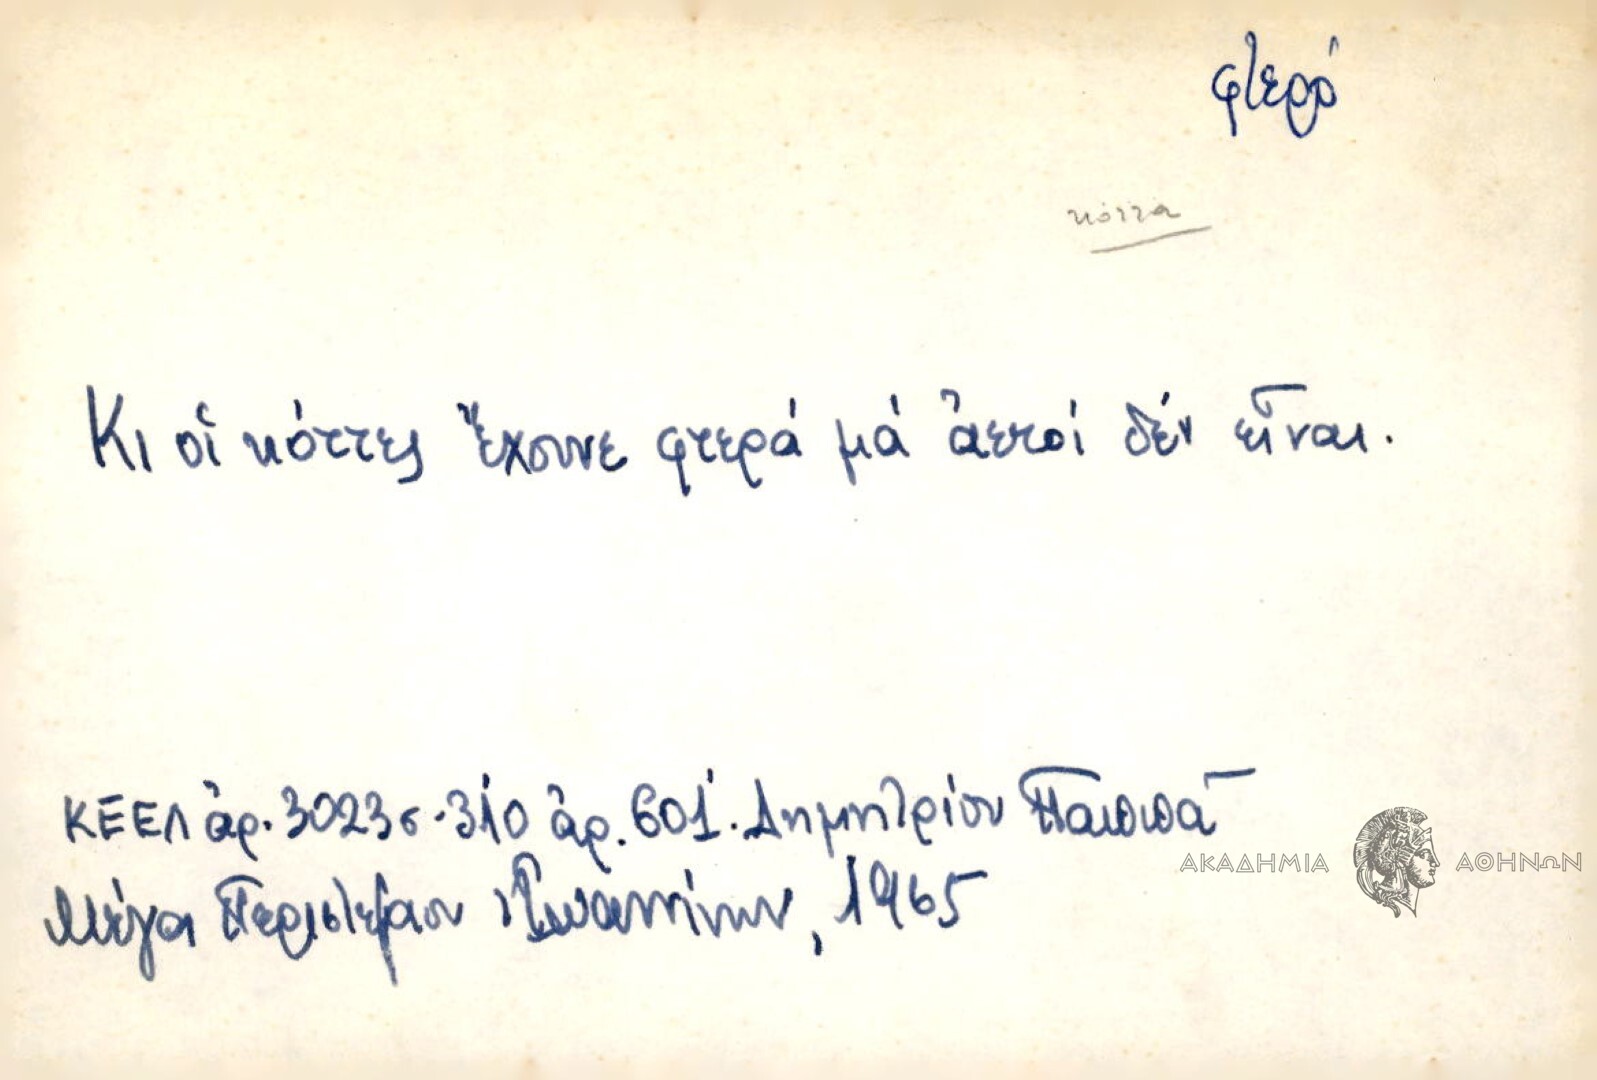 φτερό
κόττα
Κι οἱ κόττες ἔχουνε φτερά μά ἀετοί δέν εἶναι.
ΚΕΕΛ ἀρ. 3023 σ. 310 ἀρ. 601. Δημητρίου Παππᾶ
Μέγα Περιστέρι Ἰωαννίνων, 1965
ΑΚΑΔΗΜΙΑ ΑΘΗΝΩΝ